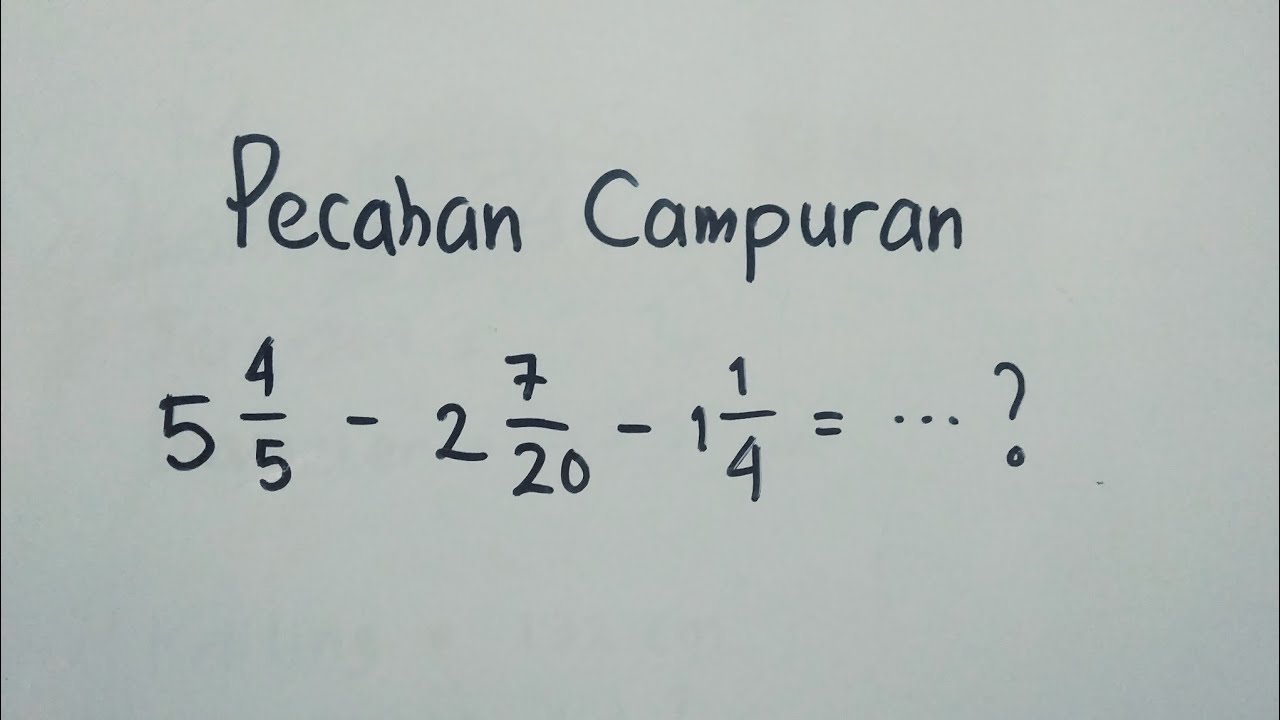 Pecahan Campuran
5 4/5 - 2 7/20 - 1 1/4 = ... ?